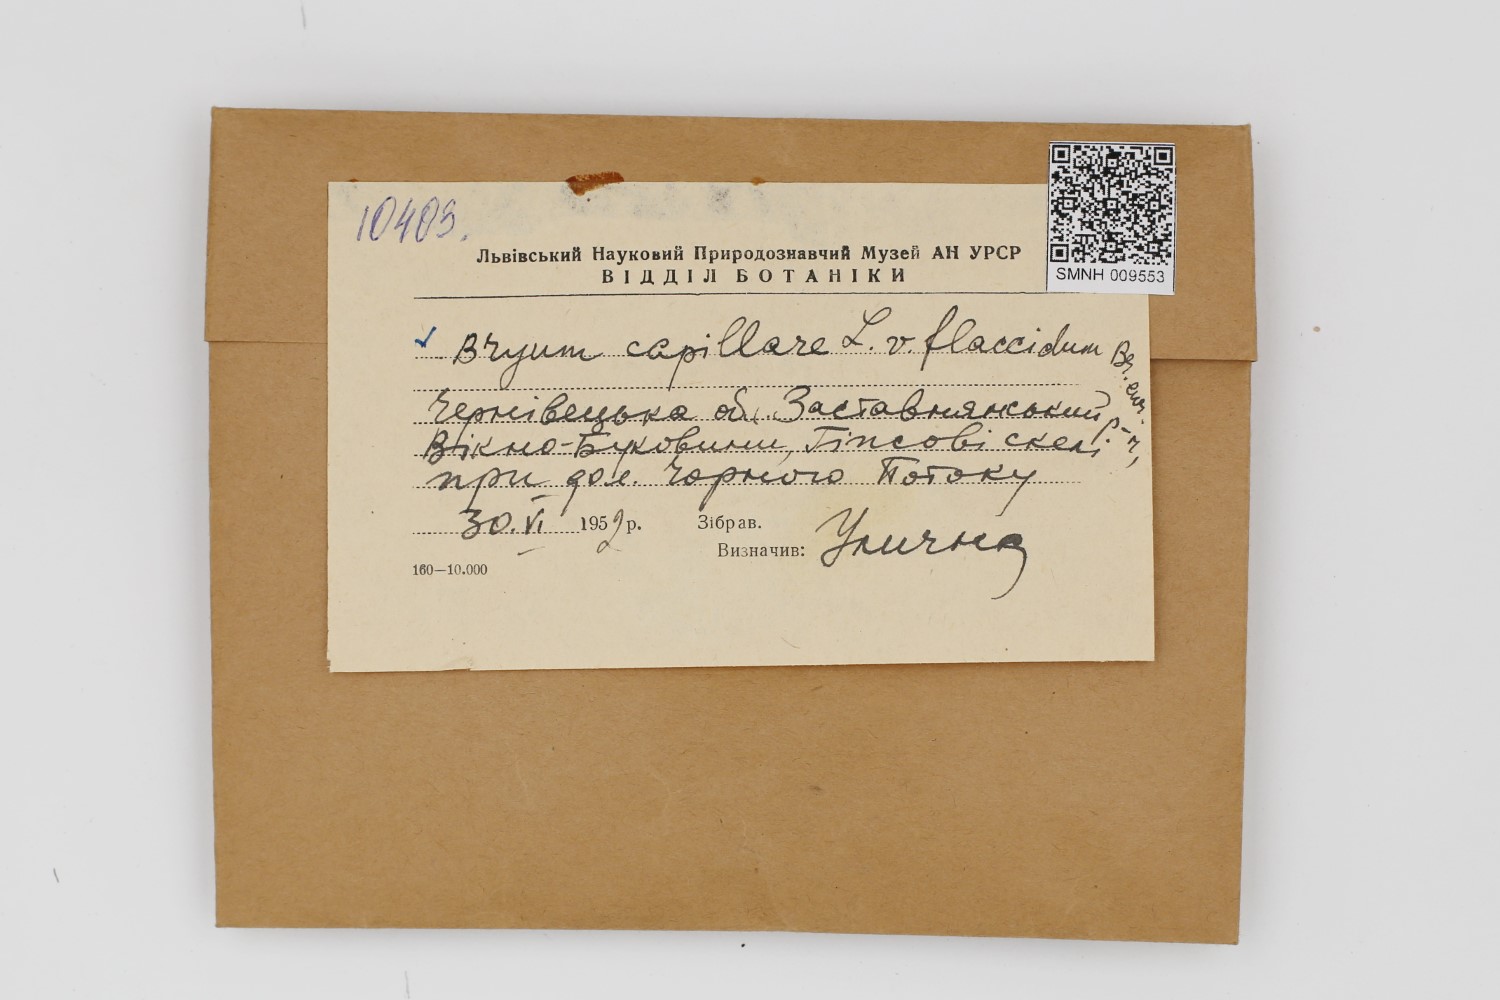 10403.
Львівський Науковий Природознавчий Музей АН УРСР
ВІДДІЛ БОТАНІКИ
SMNH 009553
Bryum capillare L. v. flaccidum Br. eur.
Чернівецька об., Заставнянський р-н,
Вікно-Буковини, Гіпсові скелі
при дол. Чорного Потоку
30.VI 1952 р. Зібрав.
Визначив: Улична
160—10.000